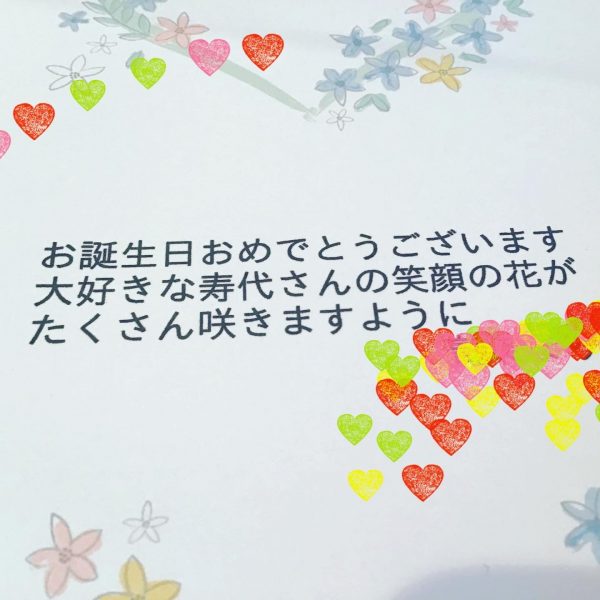 お誕生日おめでとうございます
大好きな寿代さんの笑顔の花が
たくさん咲きますように